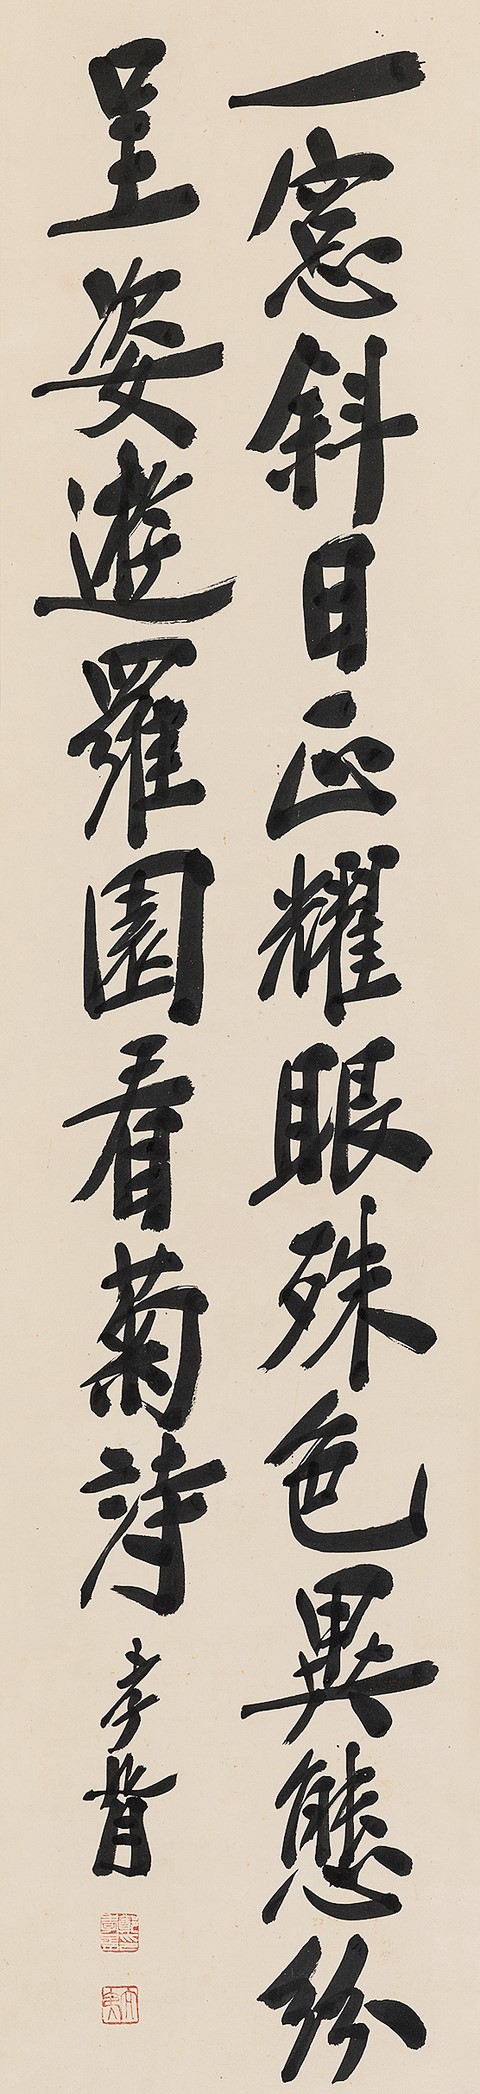 一窓斜日正耀眼殊色異態紛
呈姿遊羅園看菊詩 孝胥